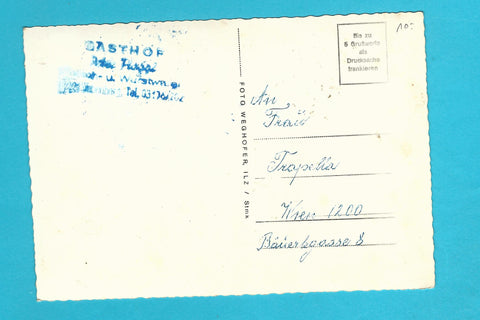 GASTHOF
Tel. 03176
FOTO WEGHOFER, ILZ / Stmk
Bis zu
5 Grußworte
als
Drucksache
frankieren
An
Frau
Trapella
Wien 1200
Bäuerlegasse 8